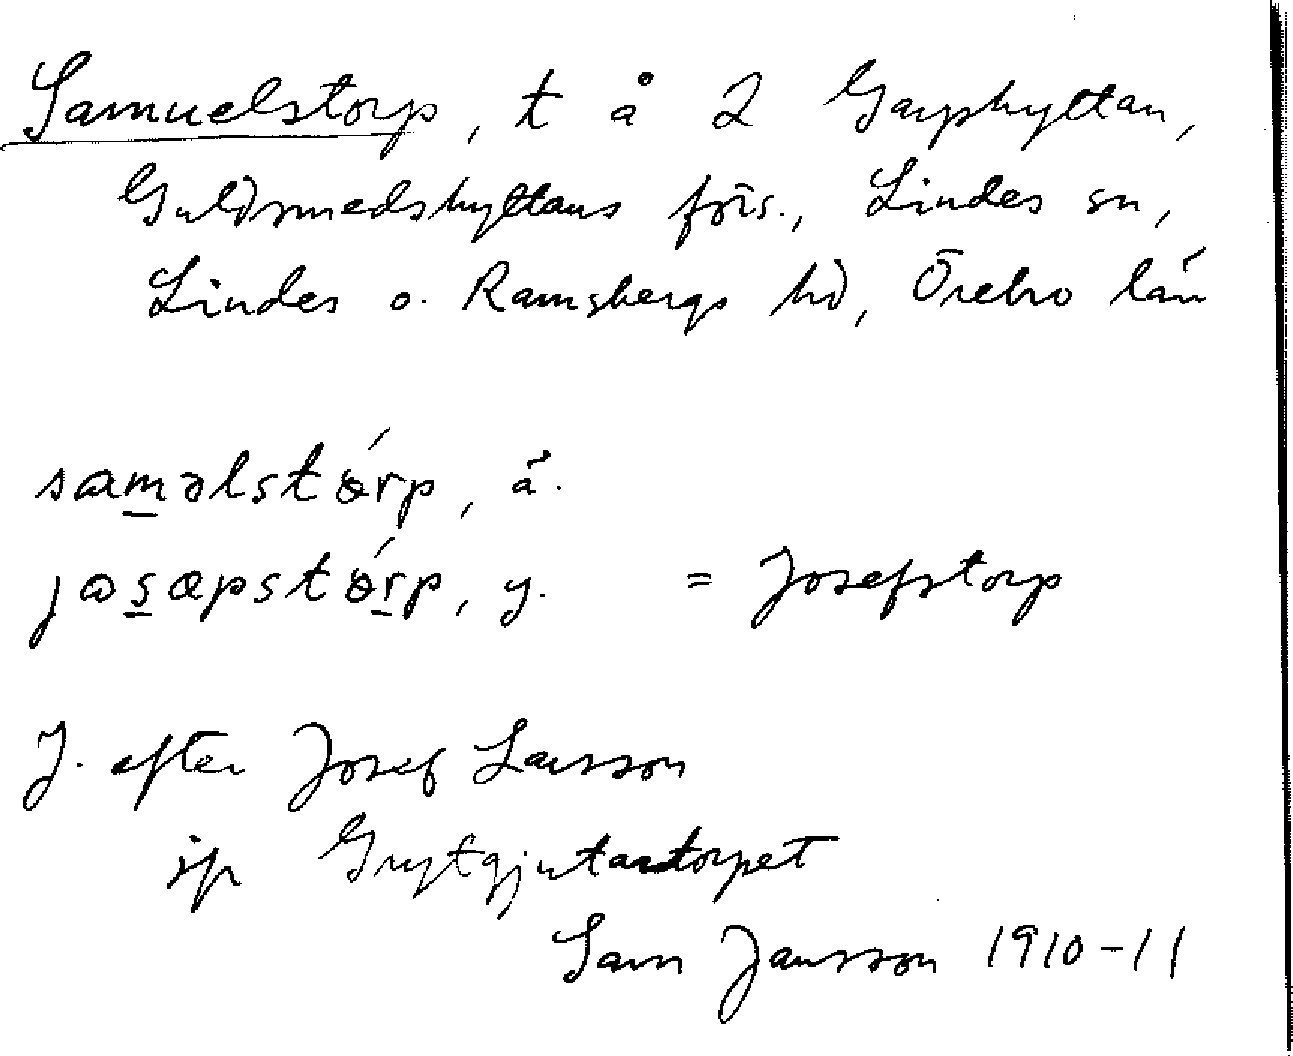 Samuelstorp, t å 2 Garphyttan,
Guldsmedshyttans förs., Lindes sn,
Lindes o. Ramsbergs hd, Örebro län
saməlstǿrp, ä.
jɷsæpstǿrp, y. = Josefstorp
J. efter Josef Larsson
i Grytgjutartorpet
Sam Jansson 1910-11